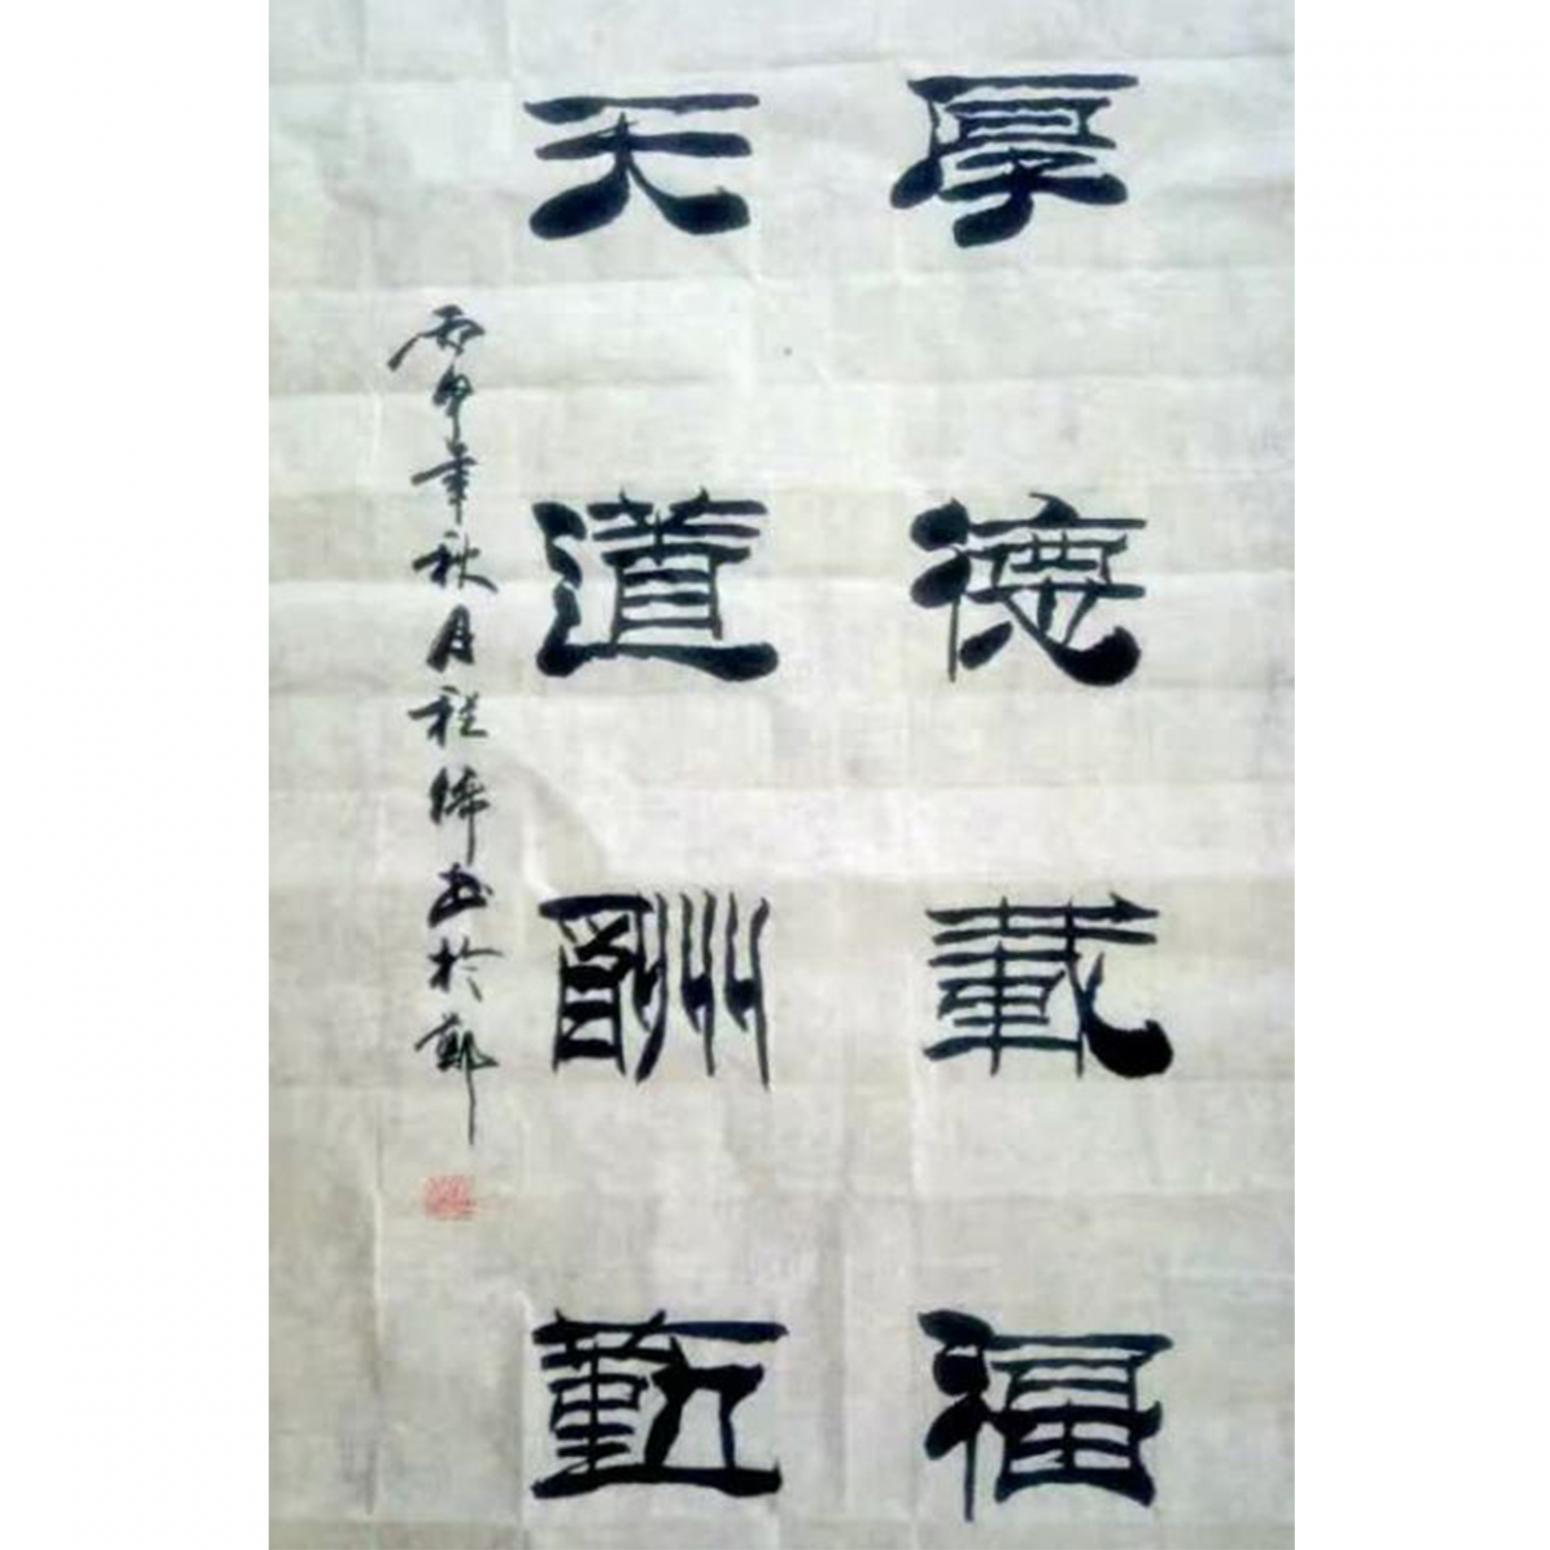 厚德載福
天道酬勤
丙申年秋月程緯书於鄭